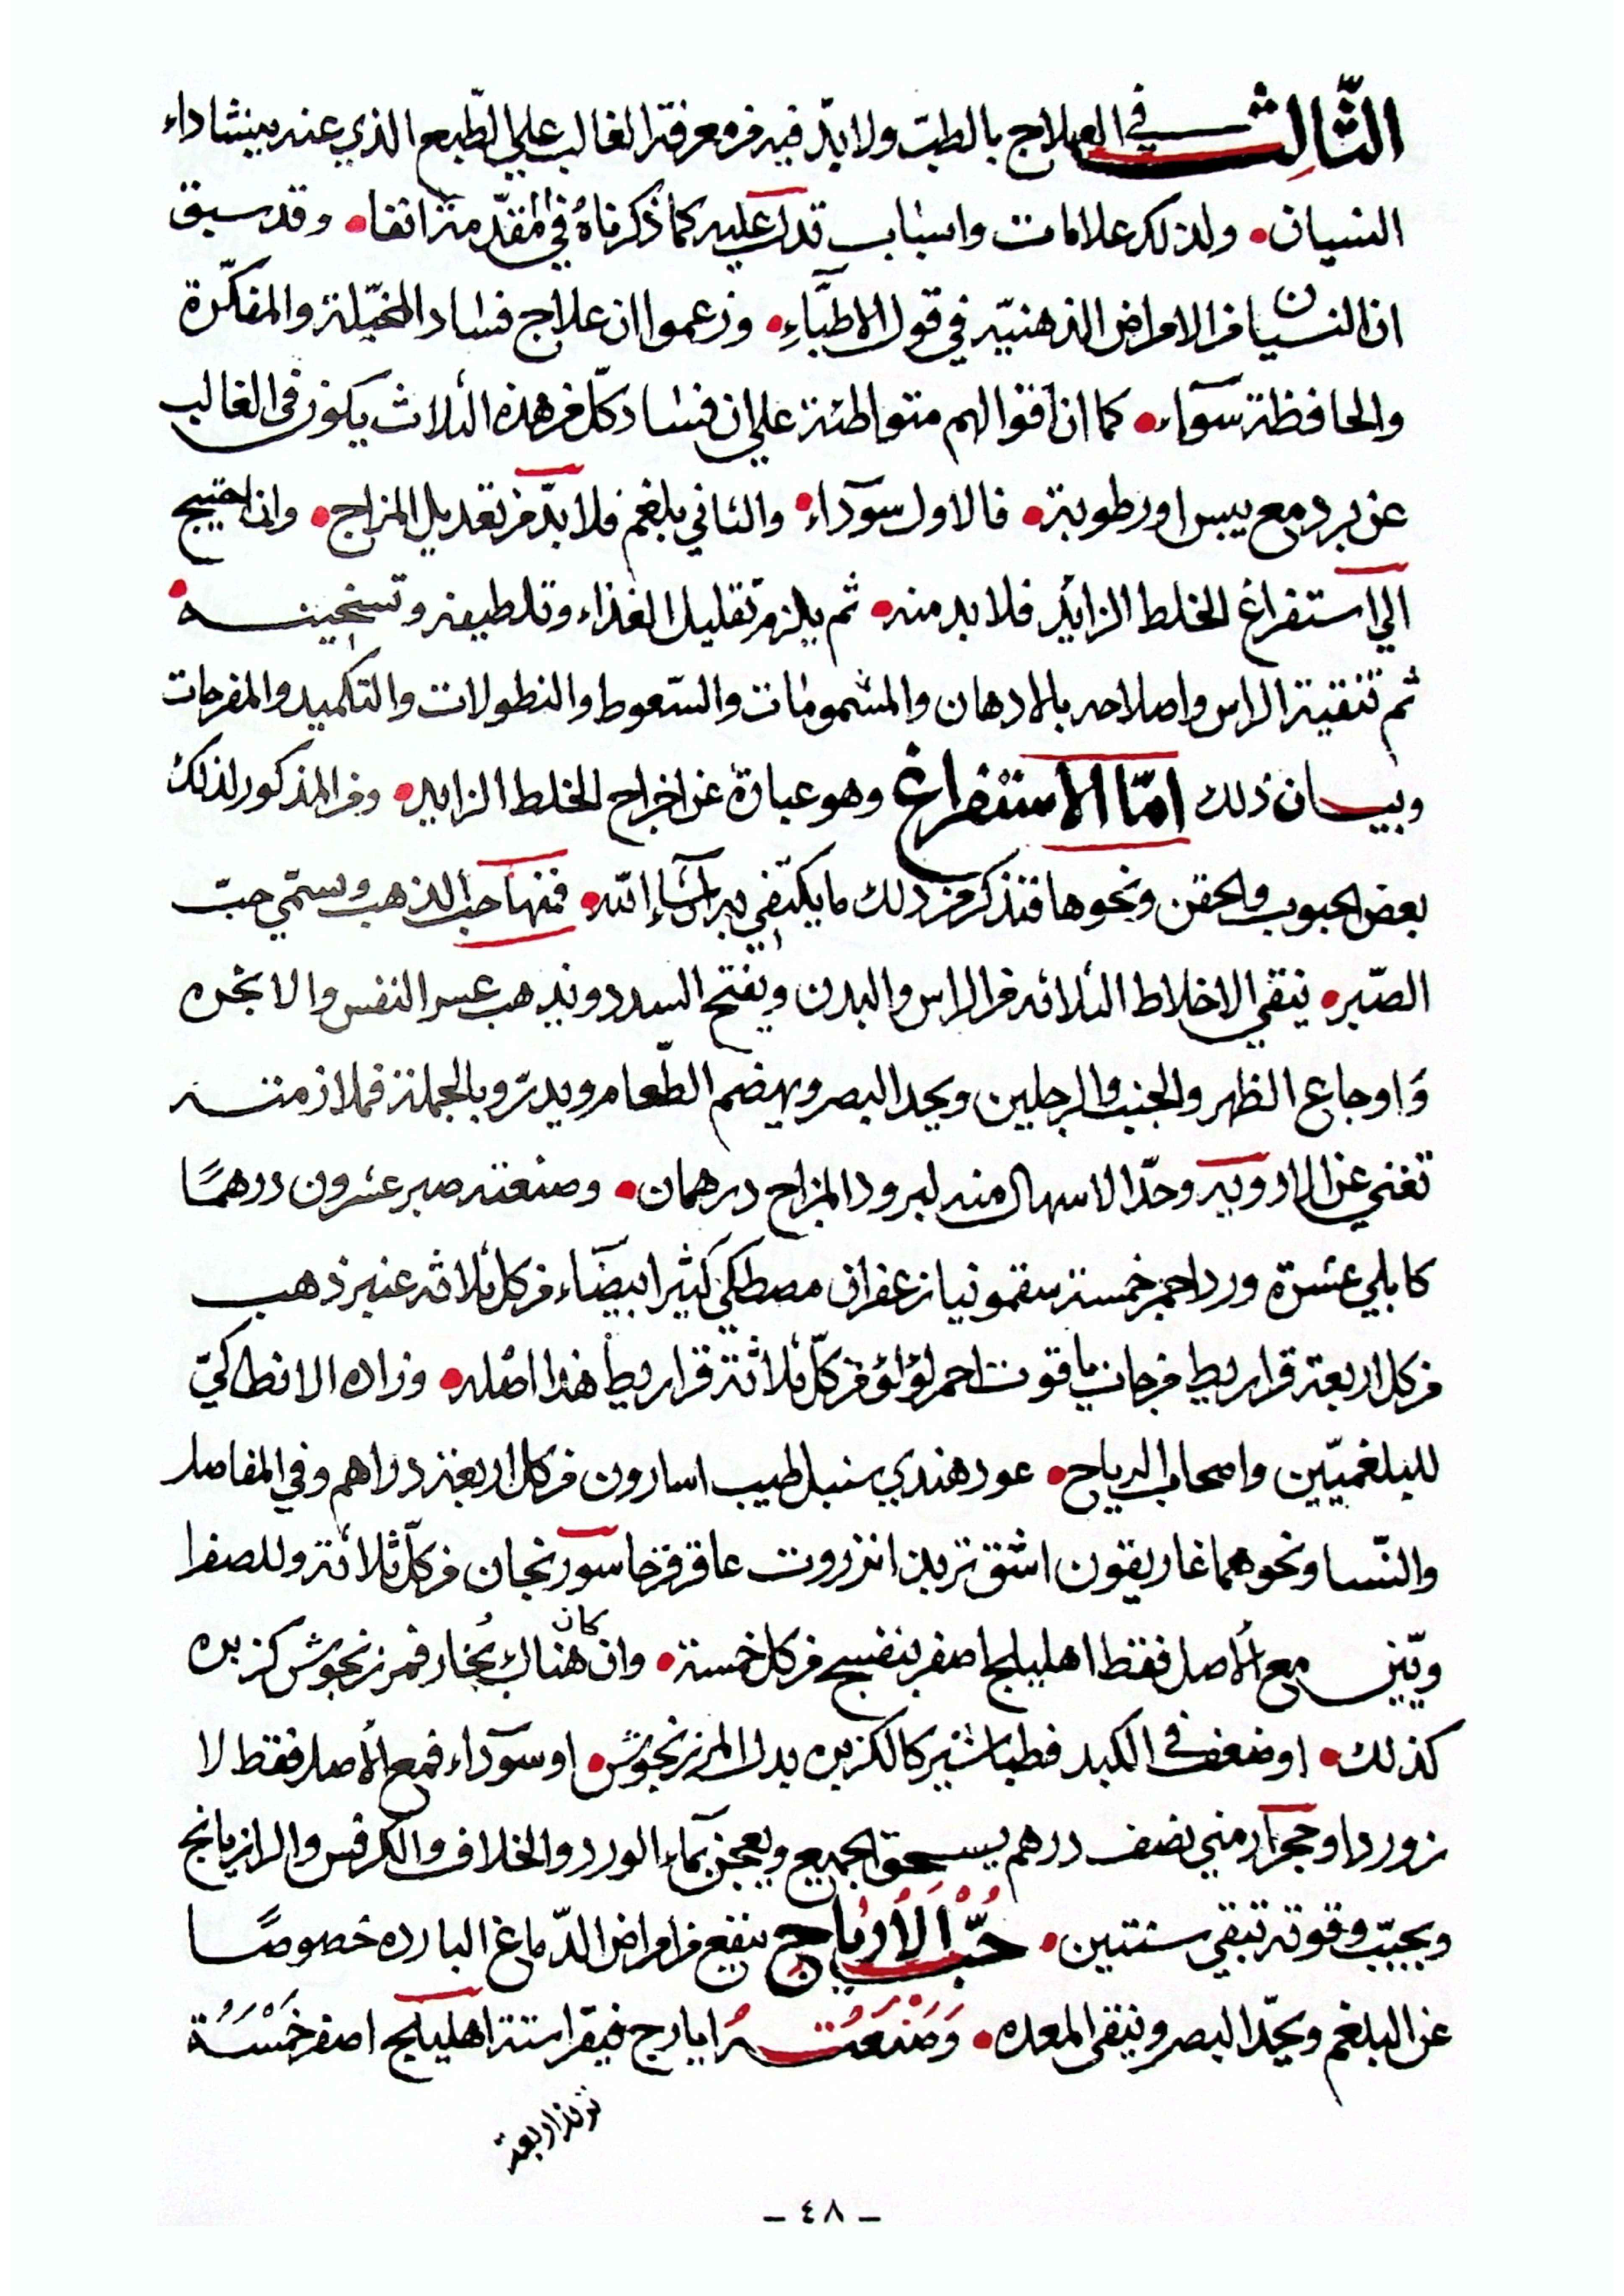 الثَّالِث في العلاج بالطبّ ولا بدّ فيه من معرفة الغالب على الطبع الذي عنه ينشا داء
النسيان • ولذلك علامات واسباب تدل عليه كما ذكرناهُ في المقدّمة انفا • وقد سبق
ان النسيان من الامراض الذهنيّه في قول الاطبَّاءِ • وزعموا ان علاج فساد المخيّلة والمفكّرة
والحافظة سوآء • كما ان اقوالهم متواطئة على ان فساد كلّ من هذه الثلاث يكون في الغالب
عن برد مع يبس او رطوبة • فالاول سودآء • والثاني بلغم فلا بدّ من تعديل المزاج • وان احتيج
الي استفراغ الخلط الزايد فلا بد منه • ثم يلزم تقليل الغذاء وتلطيفه وتسخينه •
ثم تنقية الراس واصلاحه بالادهان والمشمومات والسّعوط والنطولات والتكميد والمفرحات
وبيان ذلك امّا الاستفراغ وهو عبارة عن اخراج الخلط الزايد • ومن المذكور لذلك
بعض الحبوب والحقن ونحوها فنذكر من ذلك ما يكتفي به ان شآء الله • فمنها حب الذهب ويسمّي حبّ
الصّبر • ينقي الاخلاط الثلاثه من الراس والبدن ويفتح السدد ويذهب عسر النفس والابخره
وَاوجاع الظهر والجنب والرجلين ويحد البصر ويهضم الطّعام ويدرّ وبالجملة فملازمته
تغني عن الادويه وحدّ الاسهال منه لبرود المزاج درهمان • وصنعته صبر عشرون درهمًا
كابلي عشرة ورد احمر خمسة سقمونيا زعفران مصطكي كثيرا بيضَاء من كل ثلاثه عنبر ذهب
من كل اربعة قراريط مرجان ياقوت احمر لؤلؤ من كلّ ثلاثة قراريط هذا اصله • وزاد الانطاكيّ
للبلغميّين واصحاب الرياح • عود هندي سنبل طيب اسارون من كل اربعة دراهم وفي المفاصل
والنّسا ونحوهما غاريقون اشق تربد انزروت عاقر قرحا سورنجان من كلّ ثلاثة وللصفرا
ويّين مع الاصل فقط اهليلج اصفر بنفسج من كل خمسة • وان كان هناك بُخار فمرزنجوش كزبره
كذلك • او ضعف في الكبد فطباشير كالكزبره بدل المرزنجوش • او سودآء فمع الاصل فقط لا
زورد او حجر ارمني نصف درهم يسحق الجميع ويعجن بمآء الورد والخلاف والكرفس والرازيانج
ويحبّب وقوته تبقي سنتين • حُبُّ الاَيارج ينفع من امراض الدّماغ البارده خصوصًا
عن البلغم ويحدّ البصر وينقي المعده • وَصَنْعَتُهُ ايارج فيقرا ستة اهليلج اصفر خَمْسَة
تربذ اربعة
– ٤٨ –